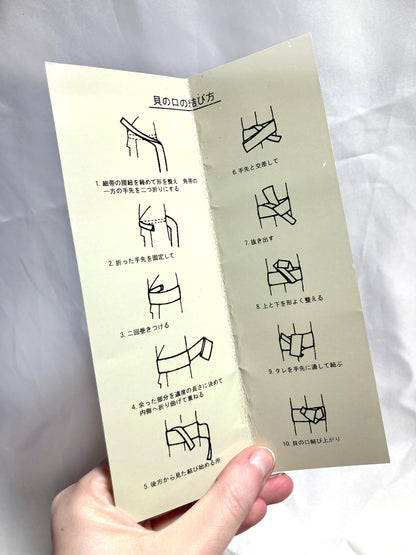 貝の口の結び方
1. 細帯の腰紐を締めて形を整え 角帯の
一方の手先を二つ折りにする
2. 折った手先を固定して
3. 二回巻きつける
4. 余った部分を適度の長さに決めて
内側へ折り曲げて重ねる
5. 後方から見た結び始める所
6. 手先と交差して
7. 抜き出す
8. 上と下を形よく整える
9. タレを手先に通して結ぶ
10. 貝の口結び上がり